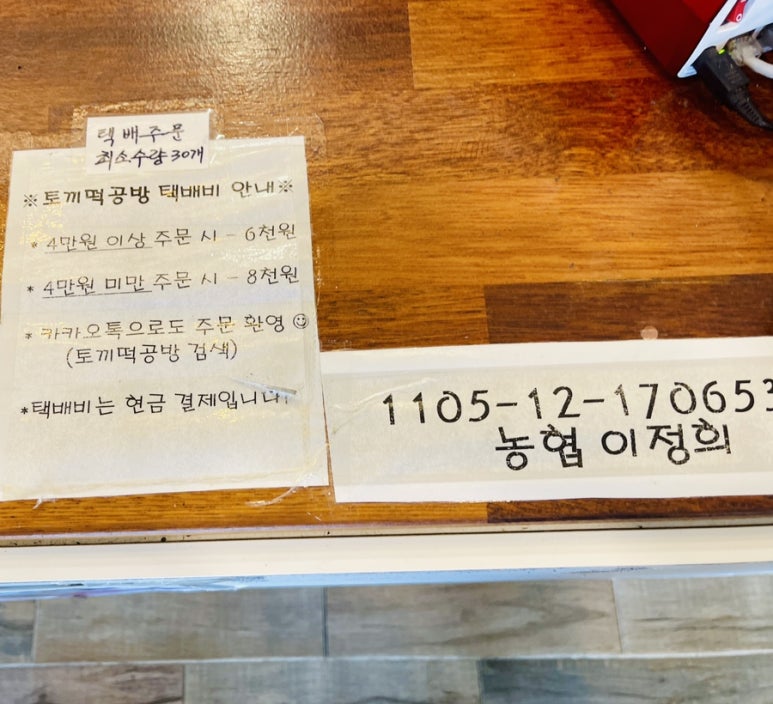 택배주문
최소수량 30개
※토끼떡공방 택배비 안내※
* 4만원 이상 주문 시 - 6천원
* 4만원 미만 주문 시 - 8천원
* 카카오톡으로도 주문 환영☺
(토끼떡공방 검색)
*택배비는 현금 결제입니다!
1105-12-170653
농협 이정희